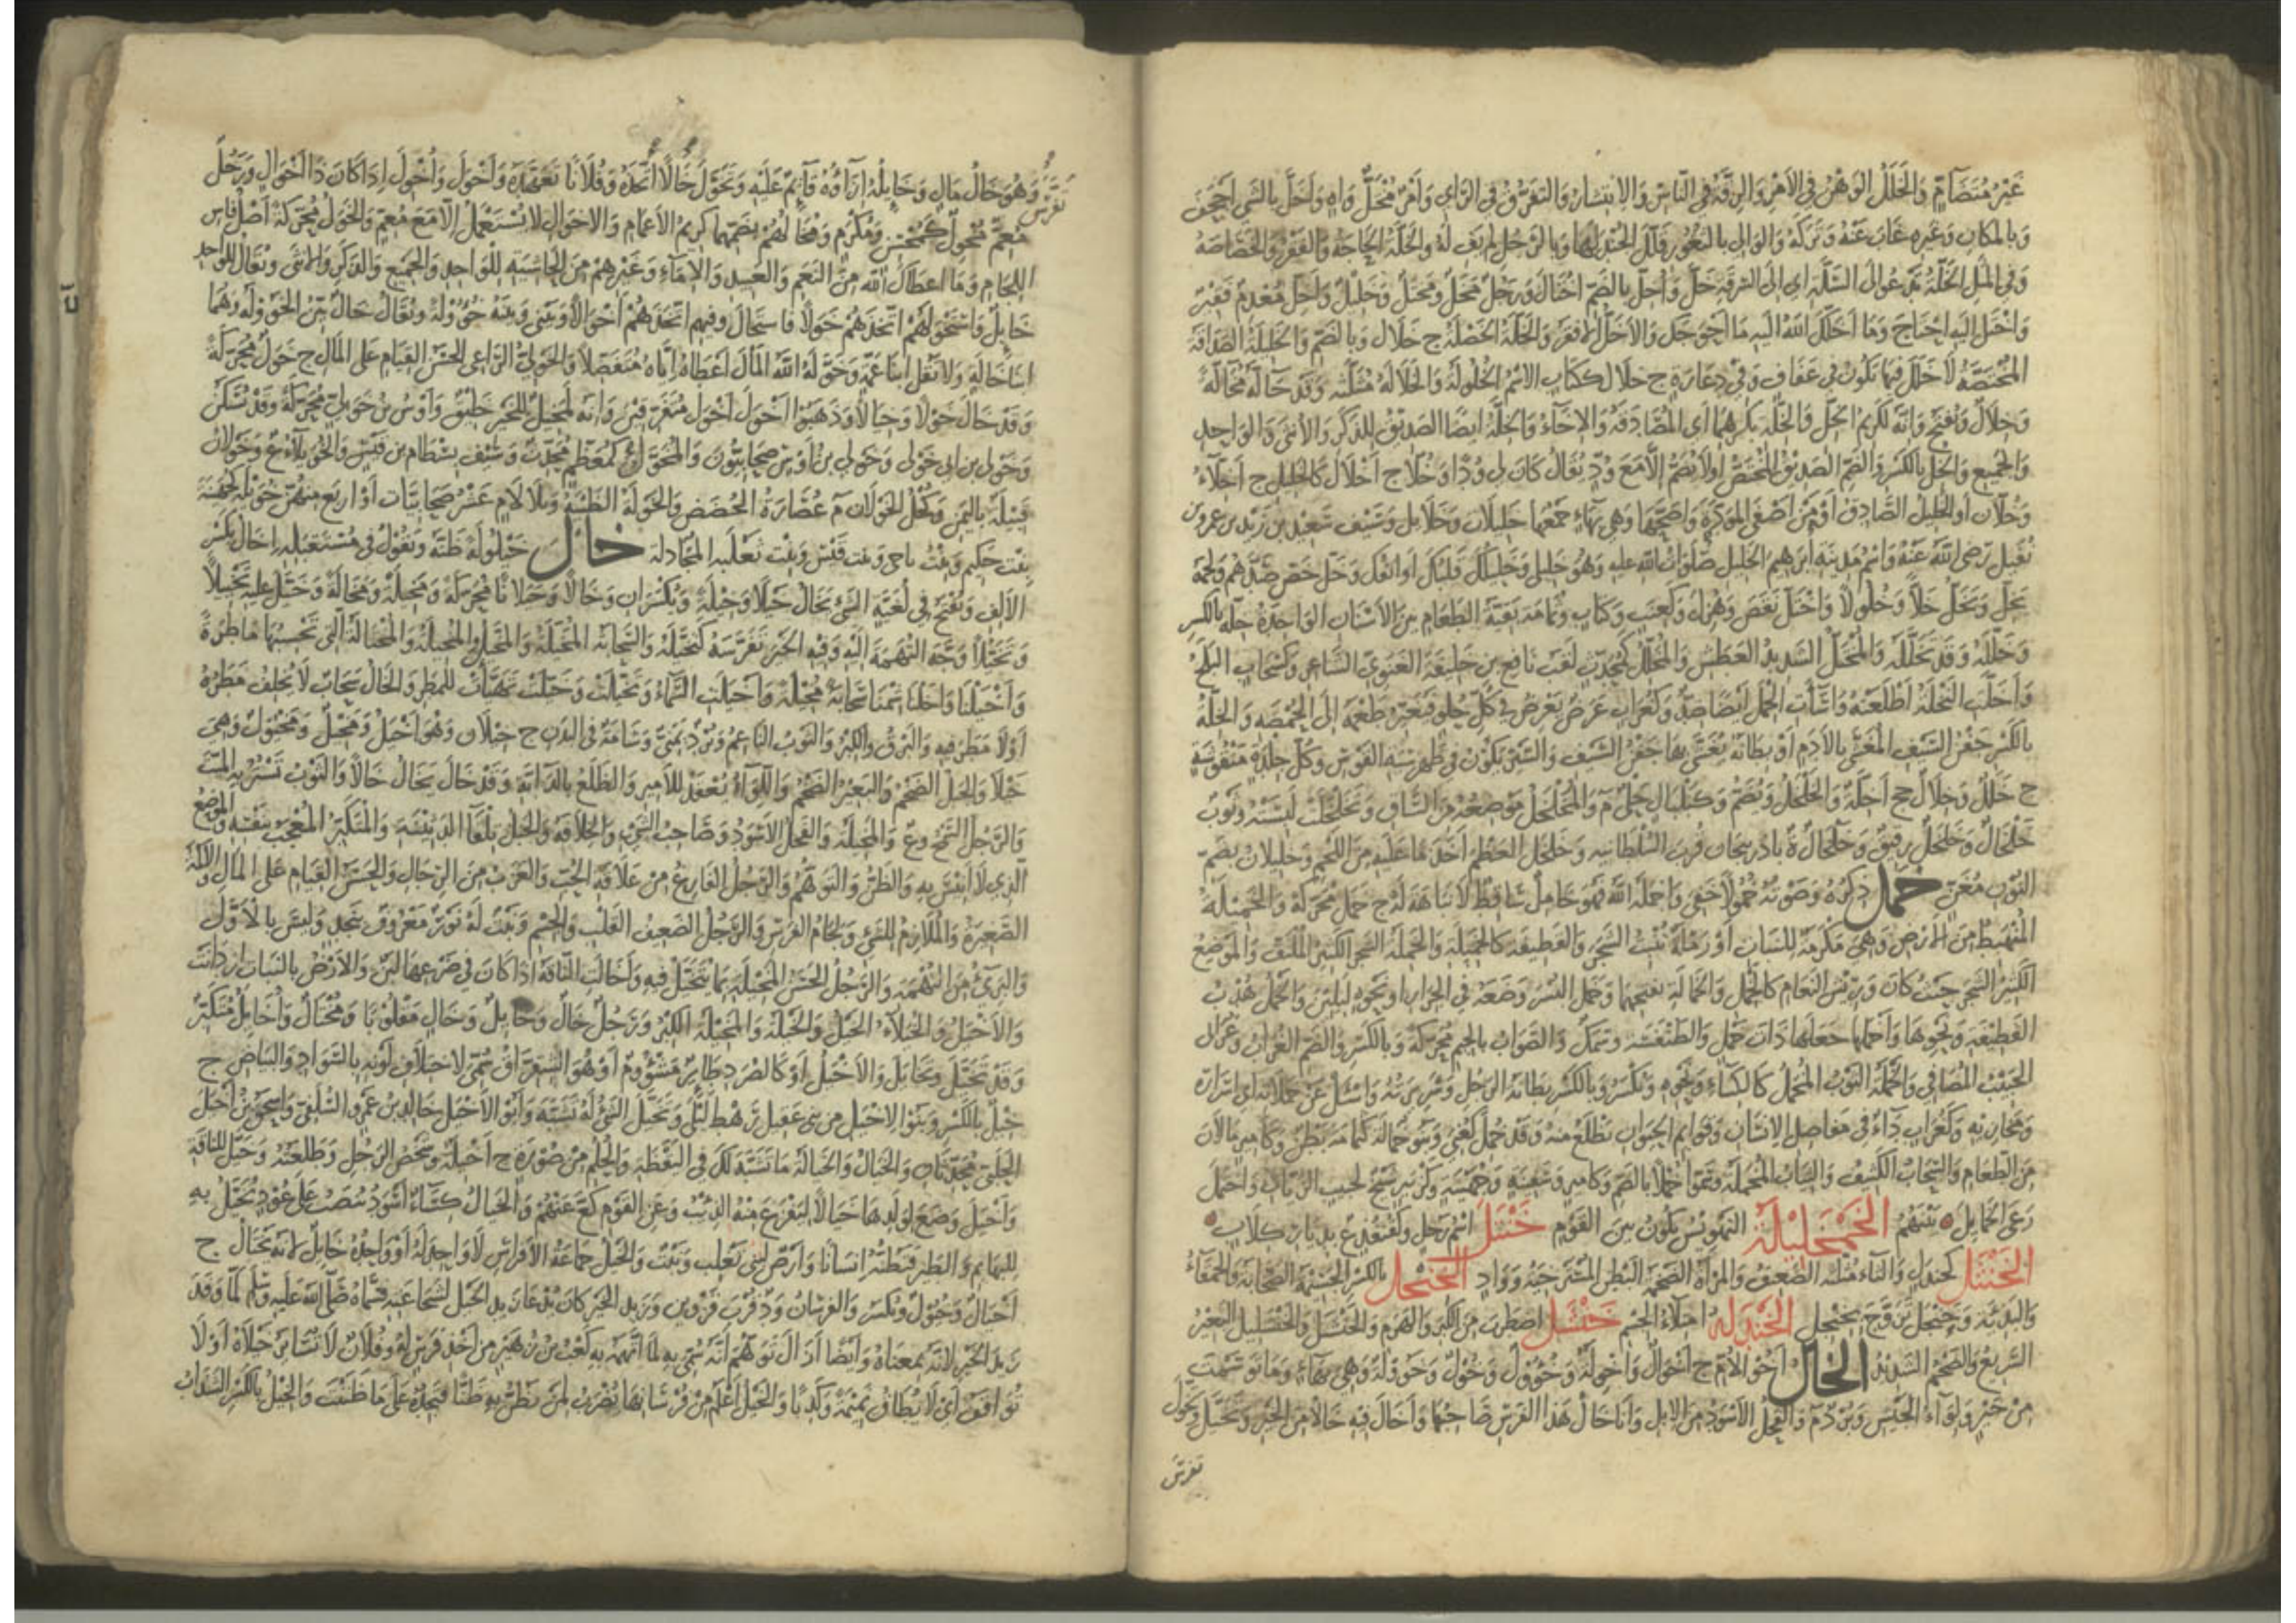 غَيْرُ مُتَضَامٍّ وَالْخَلَلُ الوَهْنُ فِي الأَمْرِ وَالرِقَّةُ فِي النَّاسِ وَالاِنْتِشَارُ وَالتَفَرُّقُ فِي الرَّايِ وَأَمْرٌ مُخْتَلٌّ وَاهٍ وَأَخَلَّ بِالشَيِ أَجْحَفَ
وَبِالمَكَانِ وَغَيْرِهِ غَابَ عَنْهُ وَتَرَكَهُ وَالوَالِ بِالثُغُورِ قَلَّلَ الجُنْدَ بِهَا وَبِالرَجُلِ لَمْ يَفِ لَهُ وَالخَلَّةُ الحَاجَةُ وَالفَقْرُ وَالخَصَاصَةُ
وَفِي المَثَلِ الخَلَّةُ تَدْعُو إِلَى السَّلَّةِ أَيْ إِلَى السَرِقَةِ خَلَّ وَأُخِلَّ بِالضَمِّ احْتَاجَ وَرَجُلٌ مُخَلٌّ وَمُخْتَلٌّ وَخَلِيلٌ وَأَخَلُّ مُعْدِمٌ فَقِيرٌ
وَاخْتَلَّ إِلَيْهِ احْتَاجَ وَمَا أَخَلَّكَ اللهُ إِلَيْهِ مَا أَحْوَجَكَ وَالأَخَلُّ الأَفْقَرُ وَالخَلَّةُ الخَصْلَةُ ج خِلَالٌ وَبِالضَمِّ وَالخَلِيلَةُ الصَدَاقَةُ
المُخْتَصَّةُ لَا خَلَلَ فِيهَا تَكُونُ فِي عَفَافٍ وَفِي دَعَارَةٍ ج خِلَال كَكِتَابٍ الاسْمُ الخُلُولَةُ وَالخَلَالَةُ مُثَلَّثَةً وَقَدْ خَالَّهُ مُخَالَّةً
وَخِلَالًا وَيُفْتَحُ وَإِنَّهُ لَكَرِيمُ الخِلِّ وَالخِلَّةِ بِكَسْرِهِمَا أَيِ المُصَادَقَةِ وَالإِخَاءِ وَالخُلَّةُ أَيْضًا الصَدِيقُ لِلذَكَرِ وَالأُنْثَى وَالوَاحِدِ
وَالجَمِيعِ وَالخِلُّ بِالكَسْرِ وَالضَمِّ الصَدِيقُ المُخْتَصُّ أَوْ لَا يُضَمُّ إِلَّا مَعَ وُدٍّ يُقَالُ كَانَ لِي وُدًّا وَخُلًّا ج أَخْلَالٌ كَالخَلِيلِ ج أَخِلَّاءُ
وَخُلَّانٌ أَوِ الخَلِيلُ الصَّادِقُ أَوْ مَنْ أَصْفَى المَوَدَّةَ وَأَصَحَّهَا وَهِيَ بِهَاءٍ جَمْعُهَا خَلِيلَاتٌ وَخَلَائِلُ وَسَيْفُ سَعِيدِ بْنِ زَيْدِ بْنِ عَمْرِو بْنِ
نُفَيْلٍ رَضِيَ اللهُ عَنْهُ وَاسْمُ مَدِينَةِ إِبْرَهِيمَ الخَلِيلِ صَلَوَاتُ اللهِ عَلَيْهِ وَهُوَ خَلِيلِي وَخَلِيلُكَ قَلْبُكَ أَوْ أَنْفُكَ وَخَلَّ خَصَّ ضِدُّ عَمَّ وَلَحْمُهُ
يَخِلُّ وَيَخُلُّ خَلًّا وَخُلُولًا وَاخْتَلَّ نَقَصَ وَهُزِلَ وَكَعِنَبٍ وَكِتَابٍ وَثُمَامَةٍ بَقِيَّةُ الطَعَامِ بَيْنَ الأَسْنَانِ الوَاحِدَةُ خِلَّةٌ بِالكَسْرِ
وَخِلَلَةٌ وَقَدْ تَخَلَّلَهُ وَالمُخْتَلُّ الشَدِيدُ العَطَشِ وَالمُخَلَّلُ كَمُحَدِّثٍ لَقَبُ نَافِعِ بْنِ خَلِيفَةَ الغَنَوِيِّ الشَّاعِرِ وَكَسَحَابٍ البَلَحُ
وَأَخَلَّتِ النَخْلَةُ أَطْلَعَتْهُ وَأَسَأَتِ الحَمْلَ أَيْضًا ضِدٌّ وَكَغُرَابٍ عَرَضٌ يَعْرِضُ فِي كُلِّ حُلْوٍ فَيُغَيِّرُ طَعْمَهُ إِلَى الحُمُوضَةِ وَالخِلَّةُ
بِالكَسْرِ جَفْنُ السَيْفِ المُغَشَّى بِالأَدَمِ أَوْ بِطَانَةٌ يُغَشَّى بِهَا جَفْنُ السَيْفِ وَالسَيْرُ يَكُونُ فِي ظَهْرِ سِيَةِ القَوْسِ وَكُلُّ جِلْدَةٍ مَنْقُوشَةٍ
ج خِلَلٌ وَخِلَالٌ جج أَخِلَّةٌ وَالخَلْخَلُ وَيُضَمُّ وَكَبَلْبَالٍ حَلْيٌ م وَالمُخَلْخَلُ مَوْضِعُهُ مِنَ السَّاقِ وَتَخَلْخَلَتْ لَبِسَتْهُ وَثَوْبٌ
خَلْخَالٌ وَخَلْخَلٌ رَقِيقٌ وَخَلْخَالُ ةٌ بِأَذَرْبِيجَانَ قُرْبَ السُلْطَانِيَةِ وَخَلْخَلَ العَظْمَ أَخَذَ مَا عَلَيْهِ مِنَ اللَّحْمِ وَخَلِيلَانُ بِضَمِّ
النُونِ مُغَنٍّ خَمَلَ ذِكْرُهُ وَصَوْتُهُ خُمُولًا خَفِيَ وَأَخْمَلَهُ اللهُ فَهُوَ خَامِلٌ سَاقِطٌ لَا نَبَاهَةَ لَهُ ج خَمَلٌ مُحَرَّكَةً وَالخَمِيلَةُ
المُنْهَبِطُ مِنَ الأَرْضِ وَهِيَ مَكْرَمَةٌ لِلنَبَاتِ أَوْ رَمْلَةٌ تُنْبِتُ الشَجَرَ وَالقَطِيفَةُ كَالخَمِيلَةِ وَالخَمْلَةُ الشَجَرُ الكَثِيرُ المُلْتَفُّ وَالمَوْضِعُ
الكَثِيرُ الشَجَرِ حَيْثُ كَانَ وَرِيشُ النَعَامِ كَالخَمْلِ وَالخَمَالَةِ بِفَتْحِهِمَا وَخَمَلَ البُسْرَ وَضَعَهُ فِي الجِرَارِ أَوْ نَحْوِهِ لِيَلِينَ وَالخَمْلُ هُدْبُ
القَطِيفَةِ وَنَحْوِهَا وَأَخْمَلَهَا جَعَلَهَا ذَاتَ خَمْلٍ وَالطِنْفِسَةُ وَسَمَكٌ وَالصَوَابُ بِالجِيمِ مُحَرَّكَةً وَبِالكَسْرِ وَالضَمِّ
الحَبِيبُ المُصَافِي وَالخَمْلَةُ الثَوْبُ المُخْمَلُ كَالكِسَاءِ وَنَحْوِهِ وَيُكْسَرُ وَبِالكَسْرِ بِطَانَةُ الرَجُلِ وَسَرِيرَتُهُ وَاسْأَلْ عَنْ خَمْلَاتِهِ أَيْ أَسْرَارِهِ
وَمَخَازِيهِ وَكَغُرَابٍ دَاءٌ فِي مَفَاصِلِ الإِنْسَانِ وَقَوَائِمِ الحَيَوَانِ يَظْلَعُ مِنْهُ وَقَدْ خُمِلَ كَعُنِيَ وَبَنُو خُمَالَةَ كَثُمَامَةَ بَطْنٌ وَكَأَمِيرٍ مَا لَانَ
مِنَ الطَعَامِ وَالسَحَابُ الكَثِيفُ وَالثِيَابُ المُخْمَلَةُ وَسَمَّوْا خُمْلًا بِالضَمِّ وَكَأَمِيرٍ وَسَفِينَةٍ وَجُهَيْنَةَ وَكَزُبَيْرٍ شَيْخٌ لِحَبِيبِ الزَيَّاتِ وَاخْتَمَلَ
رَعَى الخَمَائِلَ بَيْنَهُمْ الخَمْجَلِيلَةُ التَهْوِيشُ يَكُونُ بَيْنَ القَوْمِ خَنْتَلُ اسْمُ رَجُلٍ وَكَقُنْفُذٍ ع بِدِيَارِ كِلَابٍ
الخَنْثَلُ كَجَنْدَلٍ وَالثَّاءُ مُثَلَّثَةٌ الضَعِيفُ وَالمَرْأَةُ الضَخْمَةُ البَطْنِ المُسْتَرْخِيَةُ وَوَادٍ الخِنْجِلُ بِالكَسْرِ الجَسِيمَةُ الصَخَّابَةُ وَالحَمْقَاءُ
وَالبَذِيَّةُ وَخَنْجَلَ تَزَوَّجَ بِخِنْجِلٍ الخَنْدَلَةُ امْتِلَاءُ الجِسْمِ خَنْشَلَ اضْطَرَبَ مِنَ الكِبَرِ وَالهَرَمِ وَالخَنْشَلُ وَالخَنْشَلِيلُ البَعِيرُ
السَرِيعُ وَالضَخْمُ الشَدِيدُ الخَالُ أَخُو الأُمِّ ج أَخْوَالٌ وَأَخْوِلَةٌ وَخُؤُولٌ وَخُوَّلٌ وَخُؤُولَةٌ وَهِيَ بِهَاءٍ وَمَا تَوَسَّمْتَ
مِنْ خَيْرٍ وَلِوَاءُ الجَيْشِ وَبُرْدٌ م وَالفَحْلُ الأَسْوَدُ مِنَ الإِبِلِ وَأَنَا خَالُ هَذَا الفَرَسِ صَاحِبُهَا وَأَخَالَ فِيهِ خَالًا مِنَ الخَيْرِ وَتَخَيَّلَ وَتَخَوَّلَ
تفرس
تَفَرَّسَ وَهُوَ خَالُ مَالٍ وَخَائِلُهُ إِزَاؤُهُ قَائِمٌ عَلَيْهِ وَتَخَوَّلَ خَالًا اتَّخَذَهُ وَفُلَانًا تَعَهَّدَهُ وَأَخْوَلَ وَأُخْوِلَ إِذَا كَانَ ذَا أَخْوَالٍ وَرَجُلٌ
مُعَمٌّ مُخْوَلٌ كَمُحْسِنٍ وَمُكْرَمٍ وَمُخَالٌ مُعَمٌّ بِضَمِّهِمَا كَرِيمُ الأَعْمَامِ وَالأَخْوَالِ لَا يُسْتَعْمَلُ إِلَّا مَعَ مُعِمٍّ وَالخَوَلُ مُحَرَّكَةً أَصْلُ فَاسِ
اللِجَامِ وَمَا أَعْطَاكَ اللهُ مِنَ النَعَمِ وَالعَبِيدِ وَالإِمَاءِ وَغَيْرِهِمْ مِنَ الحَاشِيَةِ لِلْوَاحِدِ وَالجَمِيعِ وَالذَكَرِ وَالأُنْثَى وَيُقَالُ لِلْوَاحِدِ
خَائِلٌ وَاسْتَخْوَلَهُمْ اتَّخَذَهُمْ خَوَلًا وَاسْتَخَالَ وَفِيهِمِ اتَّخَذَهُمْ أَخْوَالًا وَبَيْنِي وَبَيْنَهُ خُؤُولَةٌ وَيُقَالُ خَالٌ بَيِّنُ الخُؤُولَةِ وَهُمَا
ابْنَا خَالَةٍ وَلَا تَقُلِ ابْنَا عَمَّةٍ وَخَوَّلَهُ اللهُ المَالَ أَعْطَاهُ إِيَّاهُ مُتَفَضِّلًا وَالخَوَلِيُّ الرَّاعِي الحَسَنُ القِيَامِ عَلَى المَالِ ج خَوَلٌ مُحَرَّكَةً
وَقَدْ خَالَ خَوْلًا وَخِيَالًا وَذَهَبُوا أَخْوَلَ أَخْوَلَ مُتَفَرِّقِينَ وَإِنَّهُ لَمَخِيلٌ لِلْخَيْرِ خَلِيقٌ وَأَوْسُ بْنُ خَوَلِيٍّ مُحَرَّكَةً وَقَدْ تُسَكَّنُ
وَخَوْلِيُّ بْنُ أَبِي خَوْلِي وَخَوْلِيُّ بْنُ أَوْسٍ صَحَابِيُّونَ وَالمُخَوَّلُ كَمُعَظَّمٍ مُحَدِّثٌ وَسَيْفُ بِسْطَامِ بْنِ قَيْسٍ وَالخُوَيْلَاءُ ع وَخَوْلَانُ
قَبِيلَةٌ بِاليَمَنِ وَكُحْلُ الخَوْلَانِ م عُصَارَةُ الحُضَضِ وَالخَوْلَةُ الظَبْيَةُ وَبِلَا لَامٍ عَشْرُ صَحَابِيَّاتٍ أَوْ أَرْبَعٌ مِنْهُنَّ خُوَيْلَةُ كَجُهَيْنَةَ
بِنْتُ حَكِيمٍ وَبِنْتُ نَاجِي وَبِنْتُ قَيْسٍ وَبِنْتُ ثَعْلَبَةَ المُجَادِلَةُ خَالَ خَيْلُولَةً ظَنَّهُ وَتَقُولُ فِي مُسْتَقْبَلِهِ إِخَالُ بِكَسْرِ
الأَلِفِ وَتُفْتَحُ فِي لُغَيَّةٍ الشَيْءَ يَخَالُ خَيْلًا وَخَيْلَةً وَيُكْسَرَانِ وَخَالًا وَخَيَلَانًا مُحَرَّكَةً وَمَخِيلَةً وَمَخَالَةً وَخَيَّلَ عَلَيْهِ تَخْيِيلًا
وَتَخَيُّلًا وَجَّهَ التُهْمَةَ إِلَيْهِ وَفِيهِ الخَيْرَ تَفَرَّسَهُ كَتَخَيَّلَهُ وَالسَحَابَةُ المُخَيِّلَةُ وَالمُخَيِّلُ وَالمُخِيلَةُ وَالمُخْتَالَةُ الَّتِي تَحْسِبُهَا مَاطِرَةً
وَأَخْيَلْنَا وَأَخَلْنَا شِمْنَا سَحَابَةً مُخِيلَةً وَأَخْيَلَتِ السَّمَاءُ وَتَخَيَّلَتْ وَخَيَّلَتْ تَهَيَّأَتْ لِلْمَطَرِ وَالخَالُ سَحَابٌ لَا يُخْلِفُ مَطَرُهُ
أَوْ لَا مَطَرَ فِيهِ وَالبَرْقُ وَالكِبْرُ وَالثَوْبُ النَّاعِمُ وَبُرْدٌ يَمَنِيٌّ وَشَامَةٌ فِي البَدَنِ ج خِيلَانٌ وَهُوَ أَخْيَلُ وَمَخِيلٌ وَمَخْيُولٌ وَهِيَ
خَيْلَاءُ وَالجَبَلُ الضَخْمُ وَالبَعِيرُ الضَخْمُ وَاللِّوَاءُ يُعْقَدُ لِلأَمِيرِ وَالظَلَعُ بِالدَابَّةِ وَقَدْ خَالَ يَخَالُ خَالًا وَالثَوْبُ تَسْتُرُ بِهِ المَيِّتَ
وَالرَجُلُ السَمْحُ وَع وَالمَخِيلَةُ وَالفَحْلُ الأَسْوَدُ وَصَاحِبُ الشَيْءِ وَالخِلَافَةُ وَالجَبَلُ تِلْقَاءَ الدَثِينَةِ وَالمُتَكَبِّرُ المُعْجَبُ بِنَفْسِهِ وَالمَوْضِعُ
الَّذِي لَا أَنِيسَ بِهِ وَالظَنُّ وَالتَوَهُّمُ وَالرَجُلُ الفَارِغُ مِنْ عَلَاقَةِ الحُبِّ وَالعَزَبُ مِنَ الرِجَالِ وَالحَسَنُ القِيَامِ عَلَى المَالِ وَالأَكَمَةُ
الصَغِيرَةُ وَالمُلَازِمُ لِلشَيْءِ وَلِجَامُ الفَرَسِ وَالرَجُلُ الضَعِيفُ القَلْبِ وَالجِسْمِ وَنَبْتٌ لَهُ نَوْرٌ مَعْرُوفٌ بِنَجْدٍ وَلَيْسَ بِالأَوَّلِ
وَالبَرِيءُ مِنَ التُهْمَةِ وَالرَجُلُ الحَسَنُ المَخِيلَةِ بِمَا يُتَخَيَّلُ فِيهِ وَأَخَالَتِ النَّاقَةُ إِذَا كَانَ فِي ضَرْعِهَا لَبَنٌ وَالأَرْضُ بِالنَبَاتِ ازْدَانَتْ
وَالأَخْيَلُ وَالخُيَلَاءُ الخَيْلُ وَالخَيْلَةُ وَالمَخِيلَةُ الكِبْرُ وَرَجُلٌ خَالٌ وَخَائِلٌ وَخَالٍ مَقْلُوبًا وَمُخْتَالٌ وَأُخَائِلٌ مُتَكَبِّرٌ
وَقَدْ تَخَيَّلَ وَتَخَايَلَ وَالأَخْيَلُ أَوْ كَالصُرَدِ طَائِرٌ مَشْؤُومٌ أَوْ هُوَ الشِقِرَّاقُ سُمِّيَ لِاخْتِلَافِ لَوْنِهِ بِالسَوَادِ وَالبَيَاضِ ج
خِيلٌ بِالكَسْرِ وَبَنُو الأَخْيَلِ مِنْ بَنِي عُقَيْلٍ رَهْطُ لَيْلَى وَتَخَيَّلَ الشَيْءُ لَهُ تَشَبَّهَ وَأَبُو الأَخْيَلِ خَالِدُ بْنُ عَمْرٍو السُلَفِيُّ وَإِسْحَقُ بْنُ أَخْيَلَ
الحَلَبِيُّ مُحَدِّثَانِ وَالخَيَالُ وَالخَيَالَةُ مَا تَشَبَّهَ لَكَ فِي اليَقَظَةِ وَالحُلُمِ مِنْ صُورَةٍ ج أَخْيِلَةٌ وَشَخْصُ الرَجُلِ وَطَلْعَتُهُ وَخَيَّلَ لِلنَاقَةِ
وَأَخْيَلَ وَضَعَ لِوَلَدِهَا خَيَالًا لِيَفْزَعَ مِنْهُ الذِئْبُ وَعَنِ القَوْمِ كَعَّ عَنْهُمْ وَالخَيَالُ كِسَاءٌ أَسْوَدُ يُنْصَبُ عَلَى عُودٍ يُخَيَّلُ بِهِ
لِلْبَهَائِمِ وَالطَيْرِ فَتَظُنُّهُ إِنْسَانًا وَأَرْضٌ لِبَنِي تَغْلِبَ وَنَبْتٌ وَالخَيْلُ جَمَاعَةُ الأَفْرَاسِ لَا وَاحِدَ لَهُ أَوْ وَاحِدُهُ خَائِلٌ لأَنَّهُ يَخْتَالُ ج
أَخْيَالٌ وَخُيُولٌ وَيُكْسَرُ وَالفُرْسَانُ وَد قُرْبَ قَزْوِينَ وَزَيْدُ الخَيْرِ كَانَ يُدْعَى زَيْدَ الخَيْلِ لِشَجَاعَتِهِ فَسَمَّاهُ صَلَّى اللهُ عَلَيْهِ وَسَلَّمَ لَمَّا وَفَدَ
زَيْدَ الخَيْرِ لأَنَّهُ بِمَعْنَاهُ وَأَيْضًا أَزَالَ تَوَهُّمَ أَنَّهُ سُمِّيَ بِهِ لِمَا اتَّهَمَهُ بِهِ كَعْبُ بْنُ زُهَيْرٍ مِنْ أَخْذِ فَرَسٍ لَهُ وَفُلَانٌ لَا تُسَايَرُ خَيْلَاهُ أَوْ لَا
تُوَاقَفُ أَيْ لَا يُطَاقُ نَمِيمَةً وَكَذِبًا وَالخَيْلُ أَعْلَمُ مِنْ فُرْسَانِهَا يُضْرَبُ لِمَنْ تَظُنُّ بِهِ ظَنًّا فَتَجِدُهُ عَلَى مَا ظَنَنْتَ وَالخِيلُ بِالكَسْرِ السَذَابُ